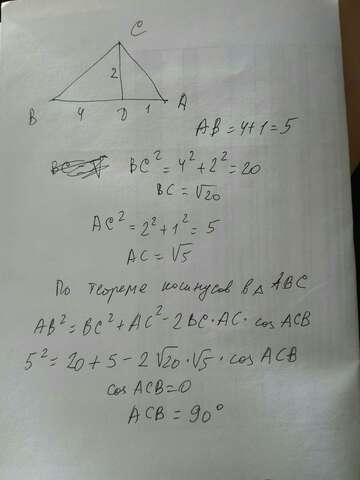 C
2
B 4 D 1 A
AB = 4+1 = 5
BC² = 4² + 2² = 20
BC = √20
AC² = 2² + 1² = 5
AC = √5
По теореме косинусов в △ ABC
AB² = BC² + AC² - 2BC · AC · cos ACB
5² = 20 + 5 - 2√20 · √5 · cos ACB
cos ACB = 0
ACB = 90°